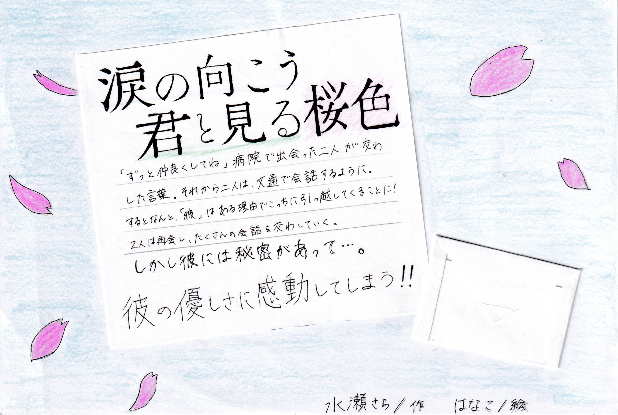 涙の向こう
君と見る桜色
「ずっと仲良くしてね」病院で出会った二人が交わ
した言葉。それから二人は、文通で会話するように。
するとなんと、「彼」はある理由でこっちに引っ越してくることに!
2人は再会し、たくさんの会話を交わしていく。
しかし彼には秘密があって…。
彼の優しさに感動してしまう!!
水瀬さら/作 はなこ/絵